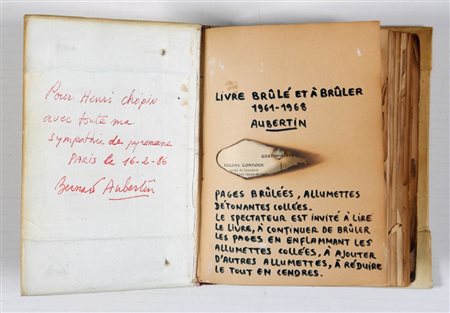 Pour Henri Chopin
avec toute ma
sympathie de pyromane
PARIS le 16-2-86
Bernard Aubertin
LIVRE BRÛLÉ ET À BRÛLER
1961-1968
AUBERTIN
EUGÈNE CONTOUX
PAGES BRÛLÉES, ALLUMETTES
DÉTONANTES COLLÉES.
LE SPECTATEUR EST INVITÉ À LIRE
LE LIVRE, À CONTINUER DE BRÛLER
LES PAGES EN ENFLAMMANT LES
ALLUMETTES COLLÉES, À AJOUTER
D'AUTRES ALLUMETTES, À RÉDUIRE
LE TOUT EN CENDRES.